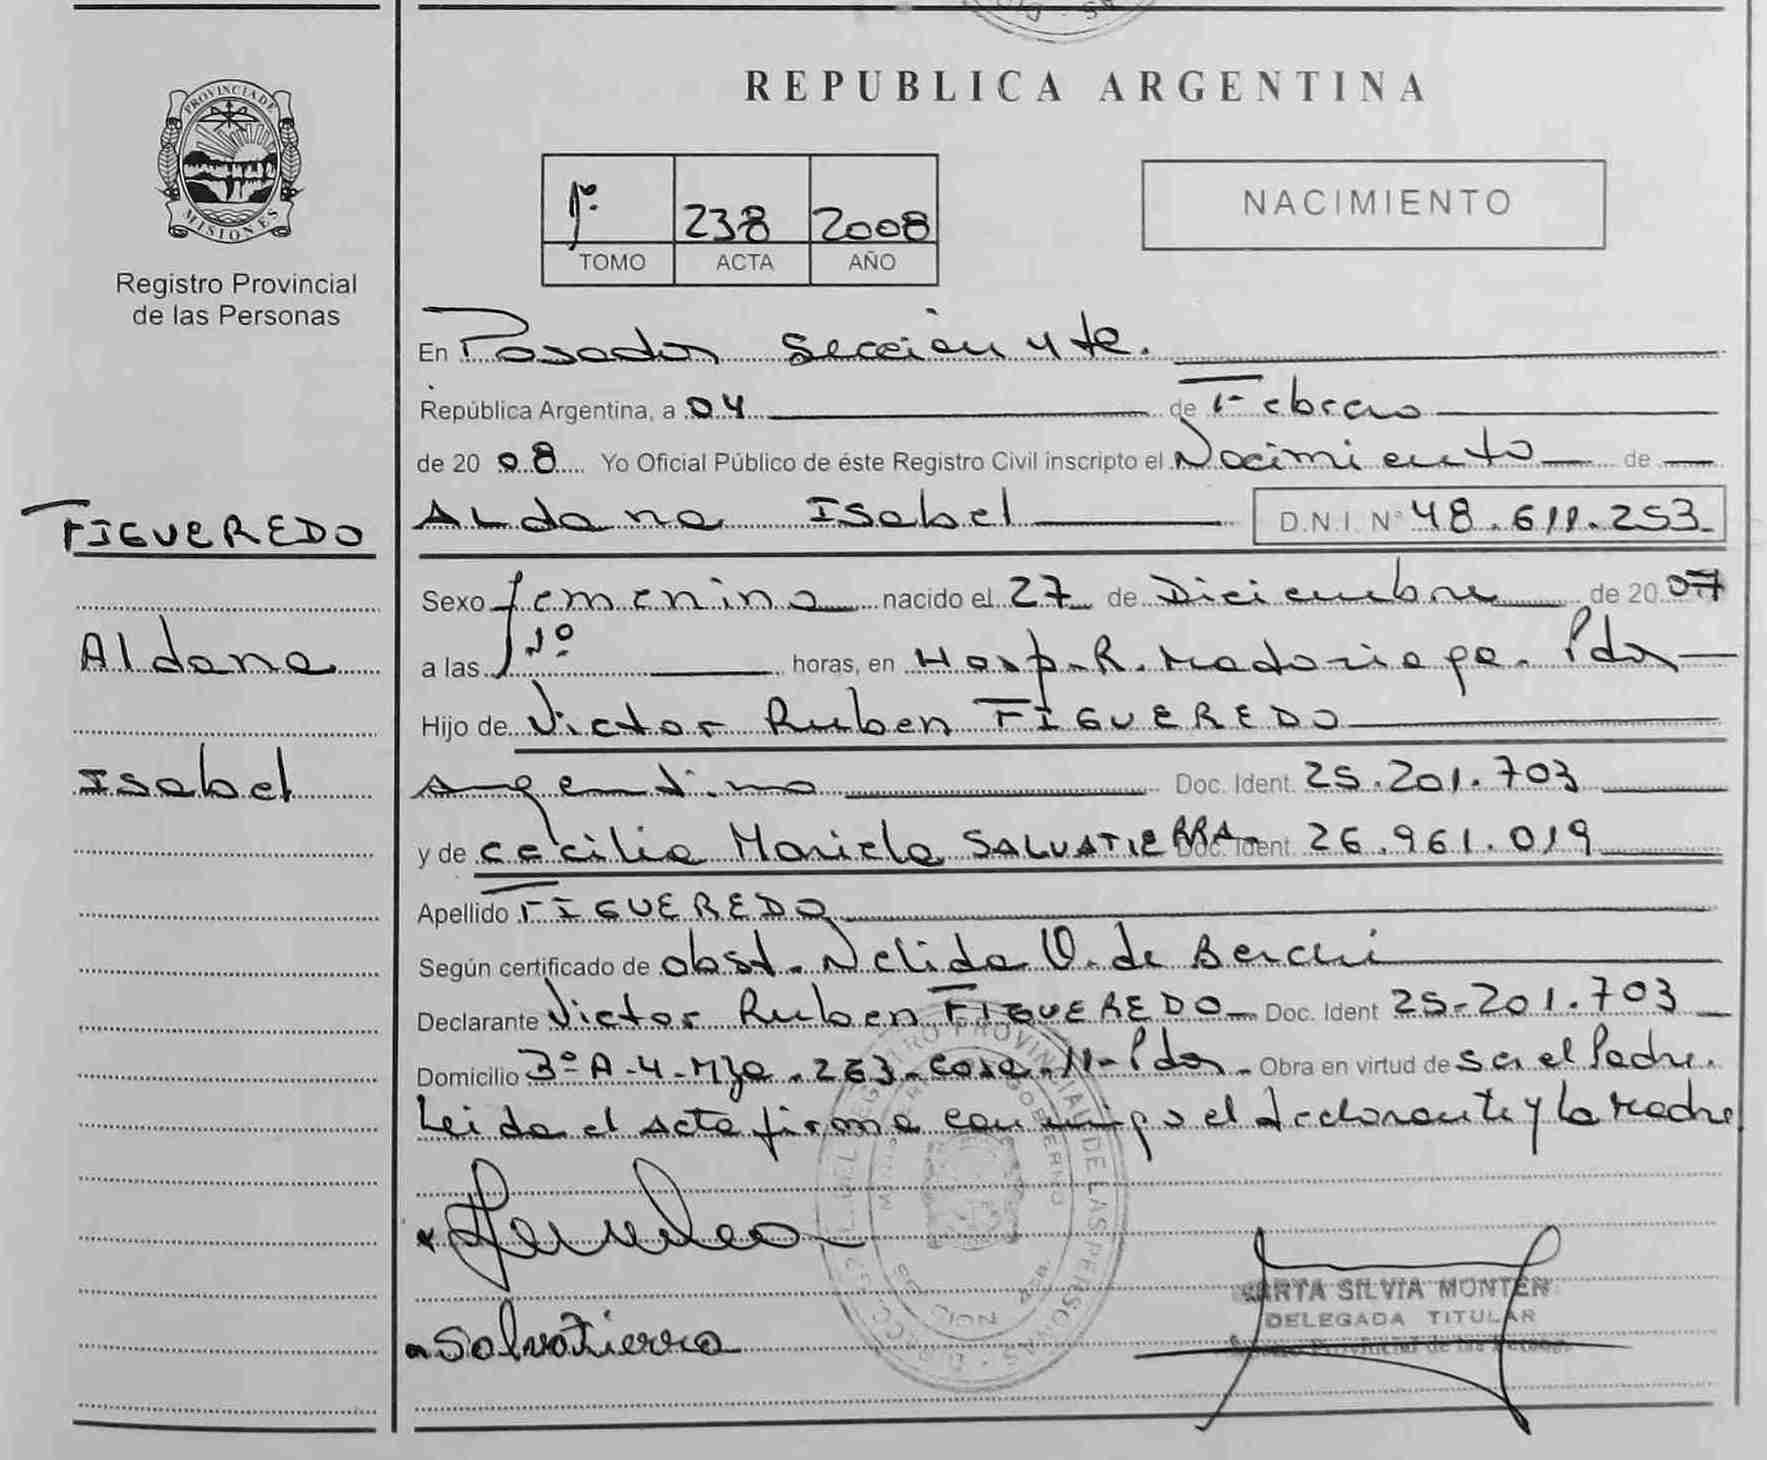 REPUBLICA ARGENTINA
PROVINCIA DE
MISIONES
Registro Provincial
de las Personas
1º 238 2008
TOMO ACTA AÑO
NACIMIENTO
En Posadas Sección 4 ta.
República Argentina, a 04 de Febrero
de 20 08 Yo Oficial Público de éste Registro Civil inscripto el Nacimiento de
FIGUEREDO
Aldana
Isabel
Aldana Isabel D.N.I. Nº 48.611.253
Sexo femenino nacido el 27 de Diciembre de 20 07
a las 1º horas, en Hosp. R. Madariaga. Pdas
Hijo de Victor Ruben FIGUEREDO
Argentino Doc. Ident. 25.201.703
y de Cecilia Mariela SALVATIERRA Doc. Ident. 26.961.019
Apellido FIGUEREDO
Según certificado de obst. Nelida V. de Berchi
Declarante Victor Ruben FIGUEREDO Doc. Ident 25-201.703
Domicilio 3º A-4-Mza.263-casa-11-Pdas Obra en virtud de ser el Padre.
Leida el acta firma conmigo el declarante y la Madre
REGISTRO PROVINCIAL DE LAS PERSONAS
Salvatierra
SILVIA MONTEN
DELEGADA TITULAR
Provincial de las